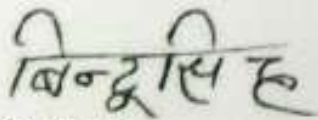 बिन्दू सिंह